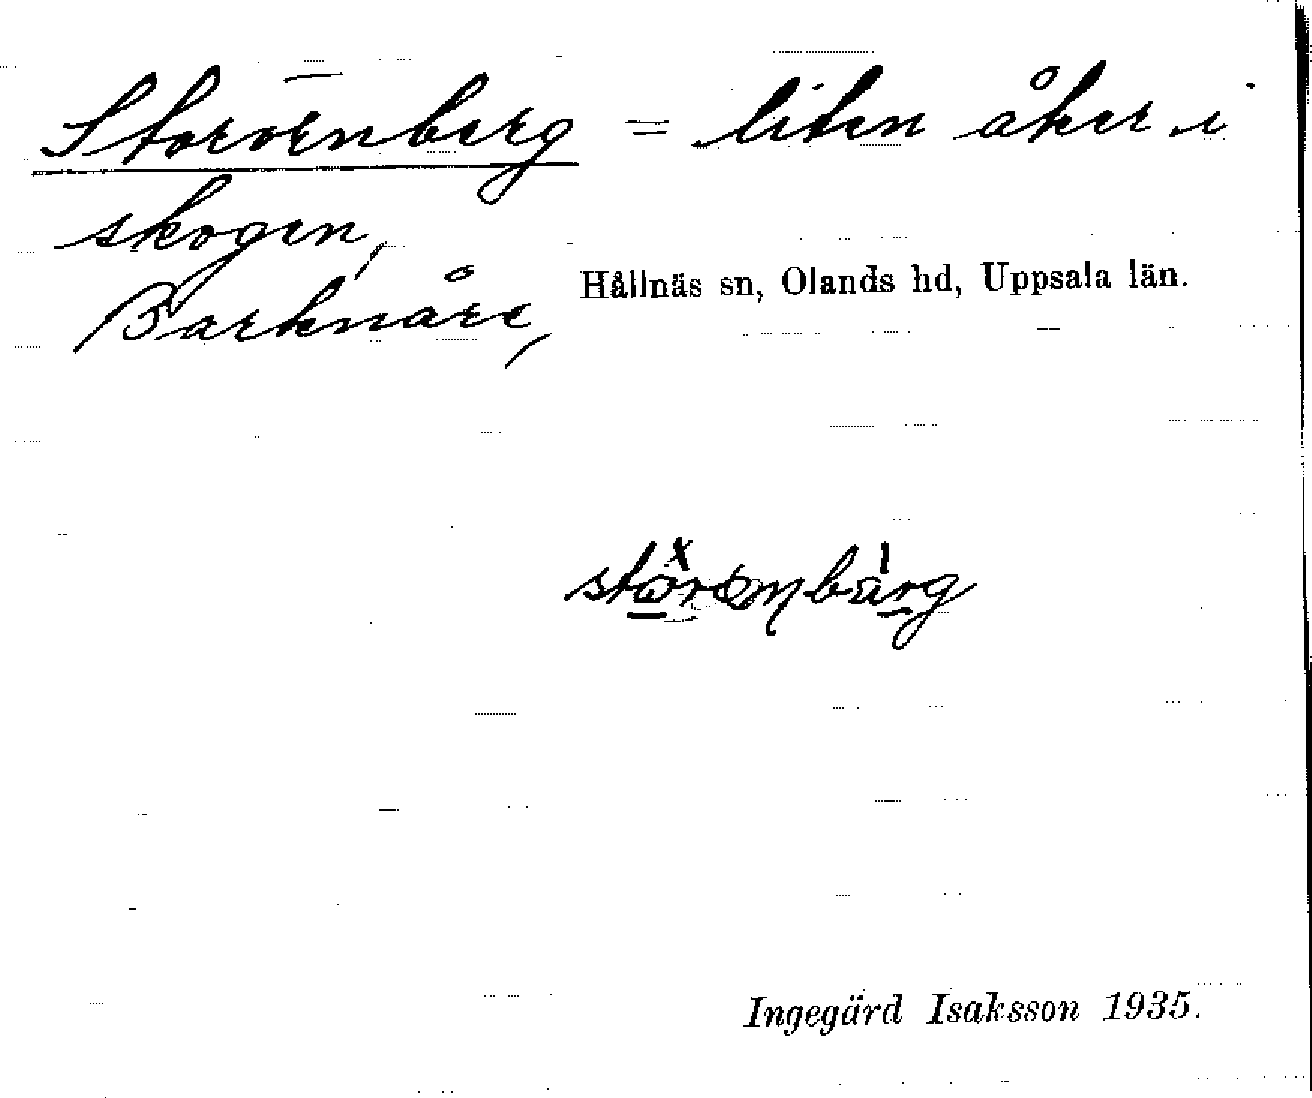 Storörnberg = liten åker i
skogen,
Barknåre, Hållnäs sn, Olands hd, Uppsala län.
Ingegärd Isaksson 1935.